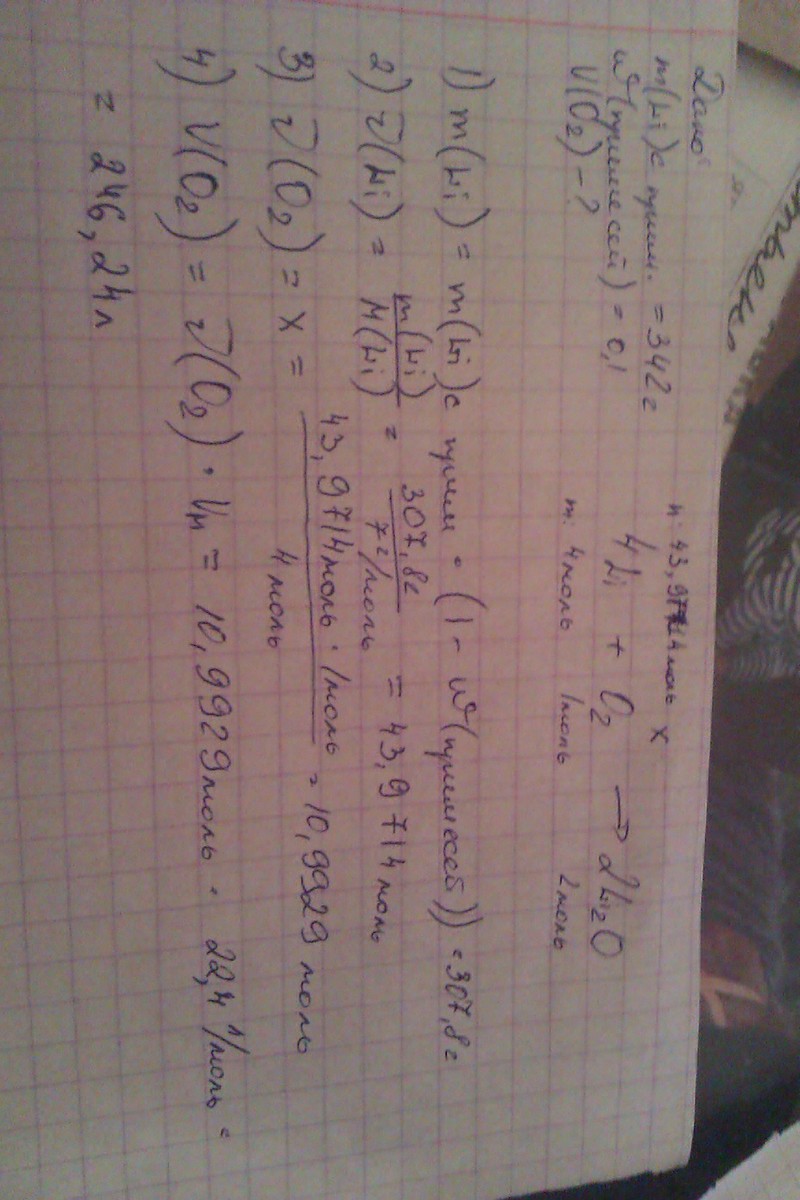 Дано:
m(Li) с прим. = 342 г
w(примесей) = 0,1
V(O₂) - ?
n: 43,9714 моль x
4Li + O₂ → 2Li₂O
m: 4 моль 1 моль 2 моль
1) m(Li) = m(Li) с прим · (1 - w(примесей)) = 307,8 г
2) ν(Li) = m(Li)/M(Li) = 307,8 г/7 г/моль = 43,9714 моль
3) ν(O₂) = x = 43,9714 моль · 1 моль/4 моль = 10,9929 моль
4) V(O₂) = ν(O₂) · Vм = 10,9929 моль · 22,4 л/моль =
= 246,24 л